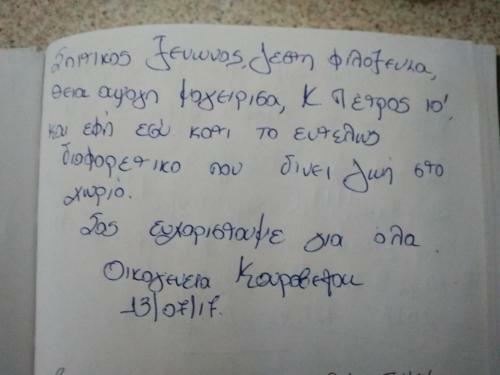 Σπιτικος ξενωνας, ζεστη φιλοξενια,
θεια αγαχη μαχειρισα, Κ Πετρος 10',
και εφη εσυ κατι το εντελως
διαφορετικο που δινει ζωη στο
χωριό.
Σας ευχαριστουμε για όλα.
Οικογενεια
13/07/17.